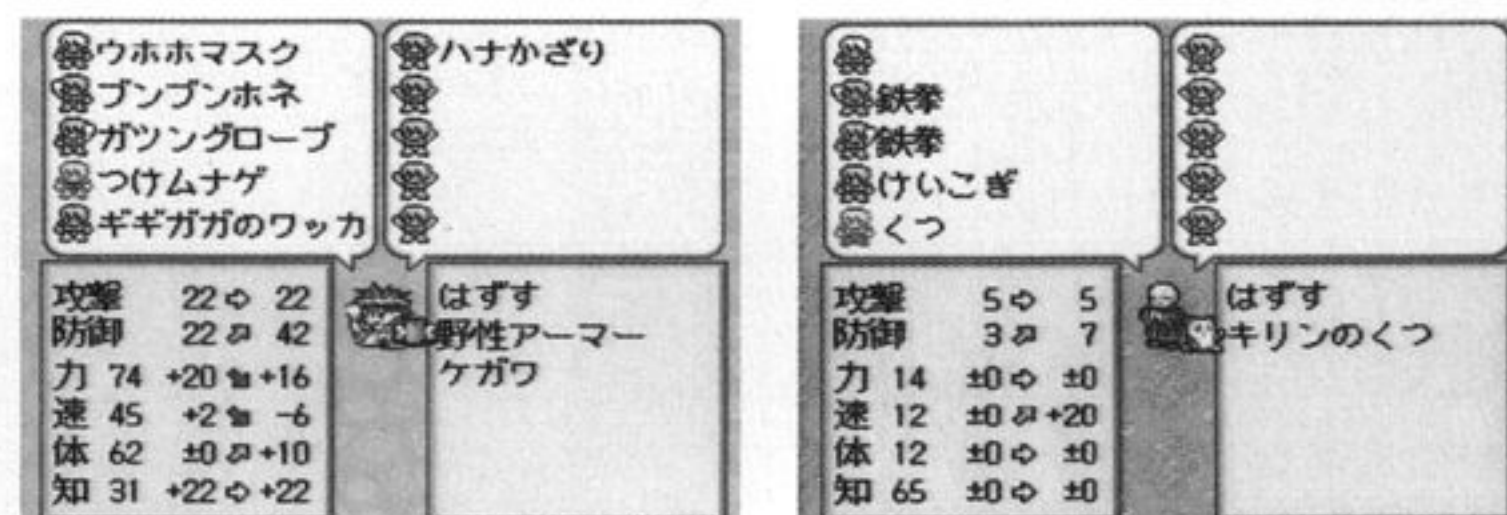 ウホホマスク
ブンブンホネ
ガツングローブ
つけムナゲ
ギギガガのワッカ
ハナかざり
攻撃 22 ⇨ 22
防御 22 ⬀ 42
力 74 +20 ⬂ +16
速 45 +2 ⬂ -6
体 62 ±0 ⬀ +10
知 31 +22 ⇨ +22
はずす
野性アーマー
ケガワ
鉄拳
鉄拳
けいこぎ
くつ
攻撃 5 ⇨ 5
防御 3 ⬀ 7
力 14 ±0 ⇨ ±0
速 12 ±0 ⬀ +20
体 12 ±0 ⇨ ±0
知 65 ±0 ⇨ ±0
はずす
キリンのくつ